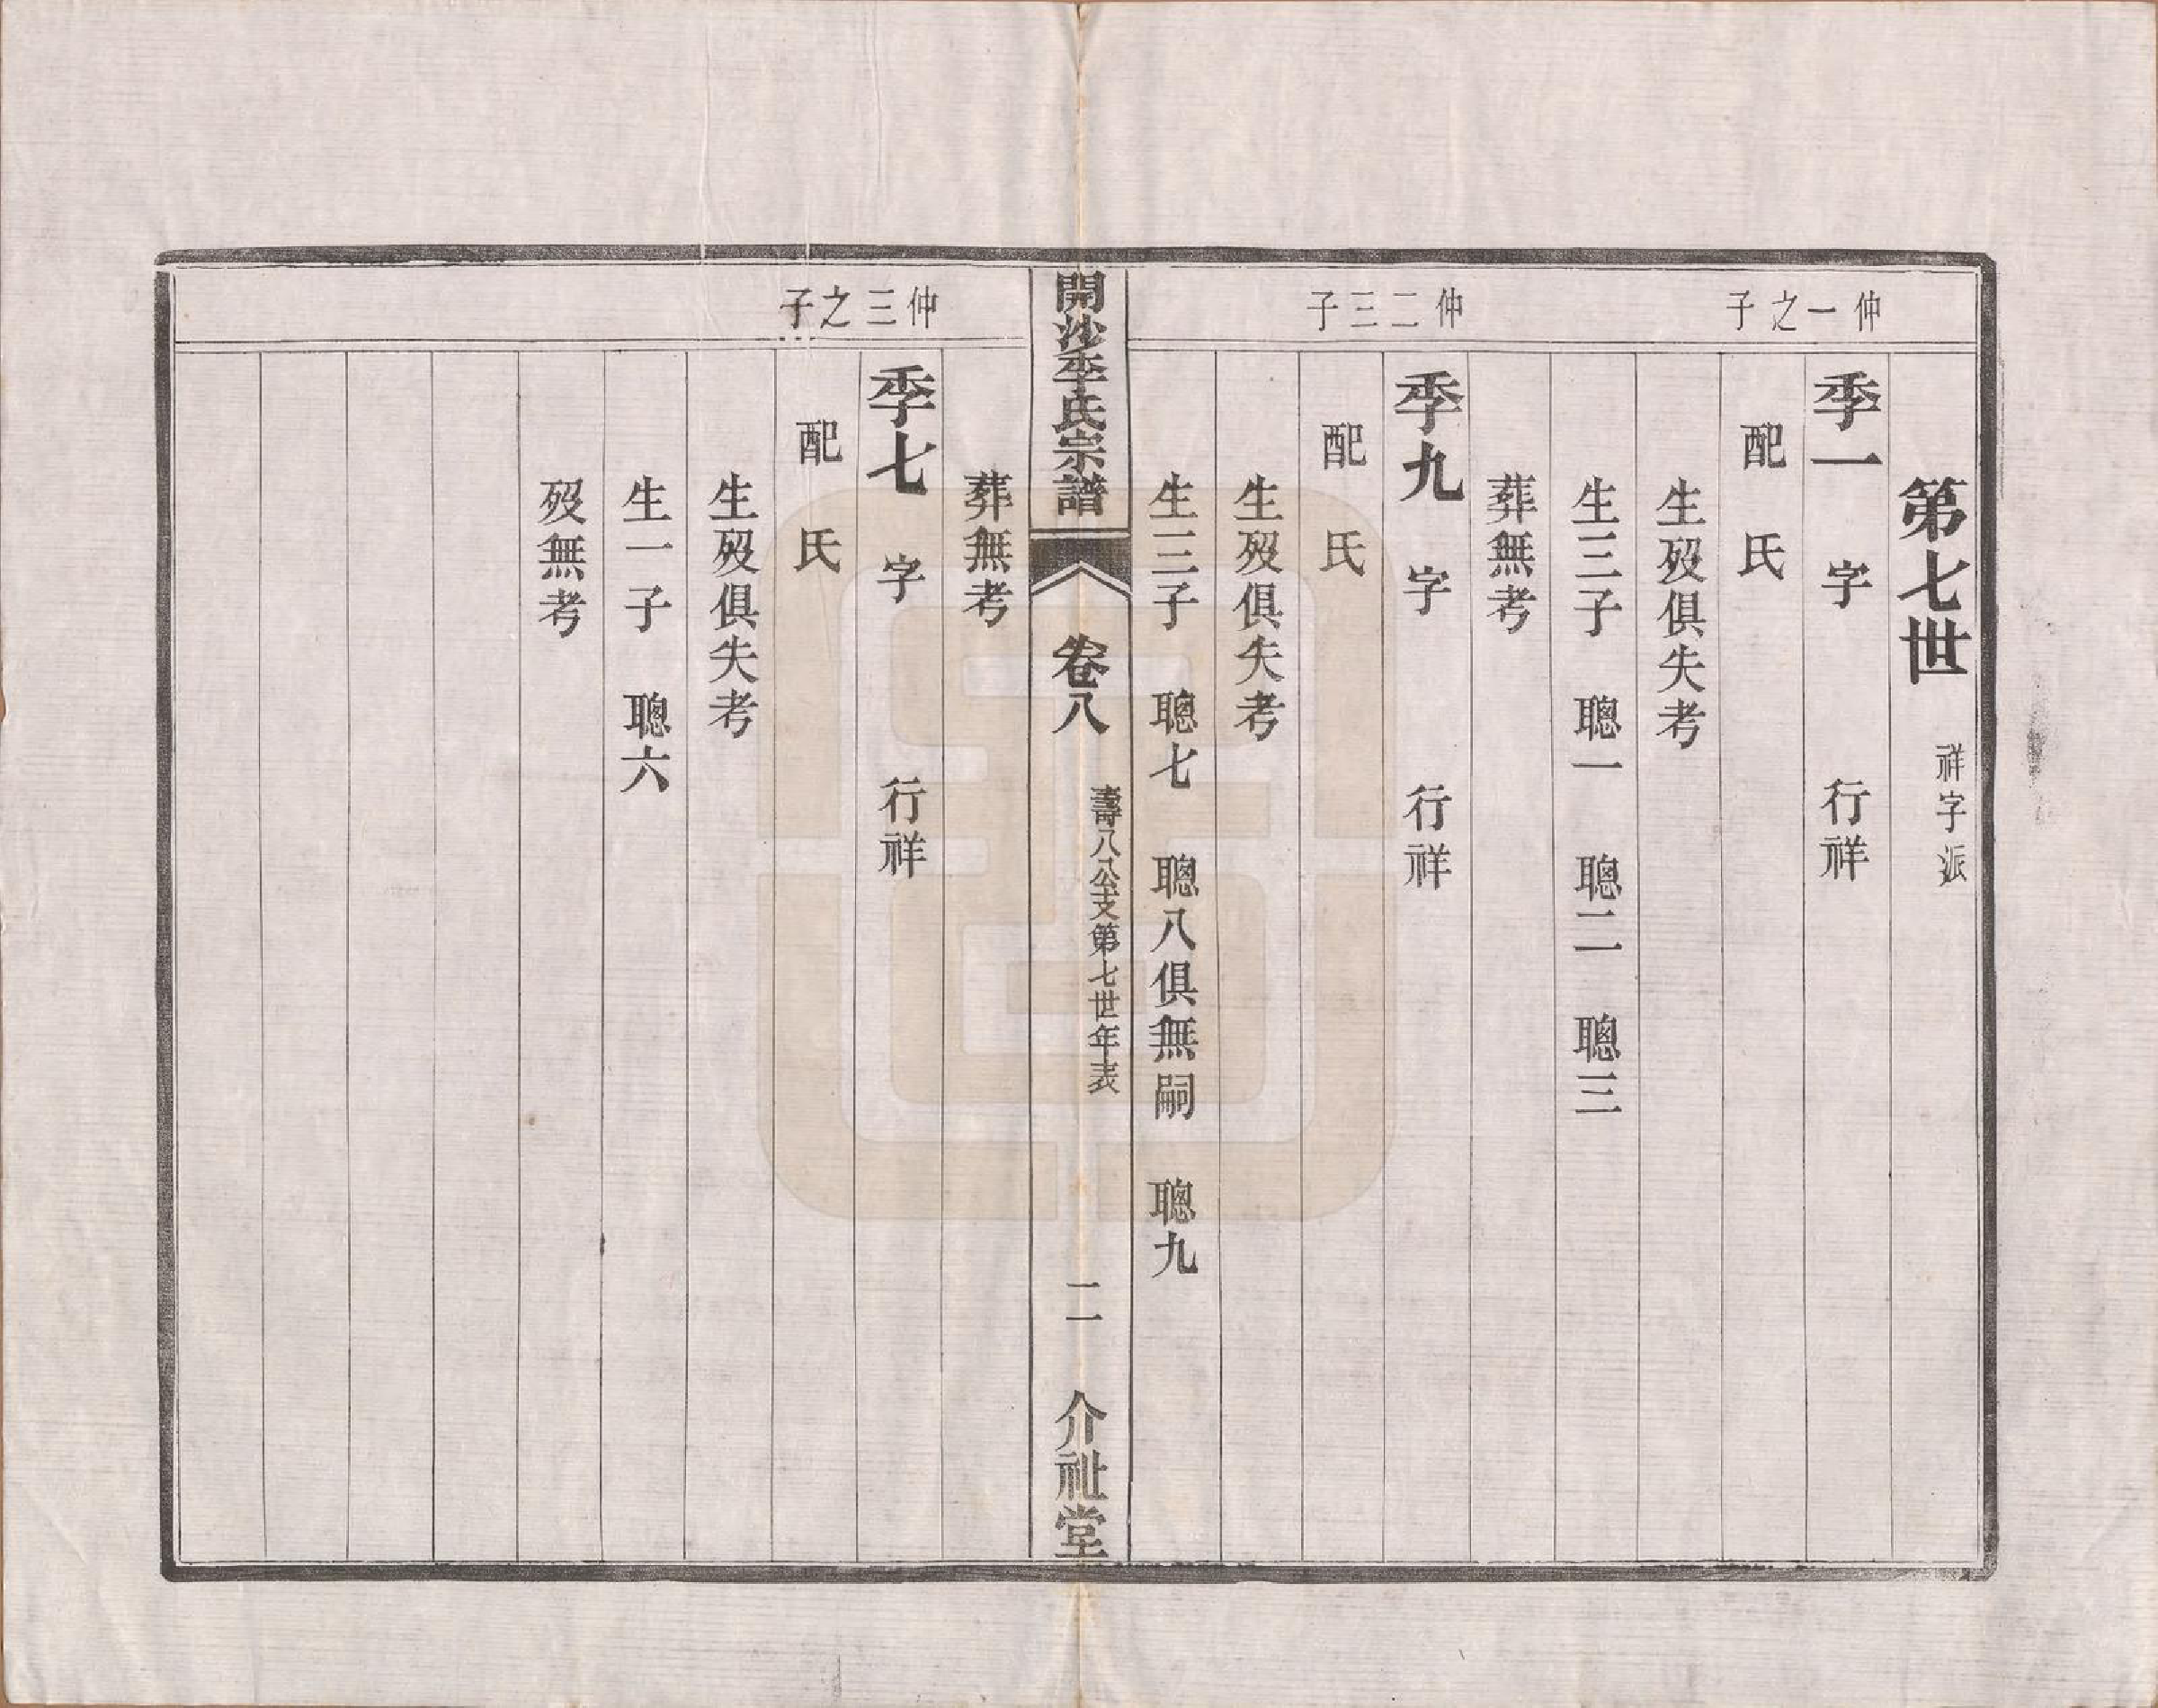 第七世 祥字派
仲一之子
季一 字 行祥
配 氏
生歿俱失考
生三子 聰一 聰二 聰三
葬無考
仲二三子
季九 字 行祥
配 氏
生歿俱失考
生三子 聰七 聰八俱無嗣 聰九
開沙季氏宗譜 卷八 壽八公支第七世年表 二 介祉堂
葬無考
仲三之子
季七 字 行祥
配 氏
生歿俱失考
生一子 聰六
歿無考